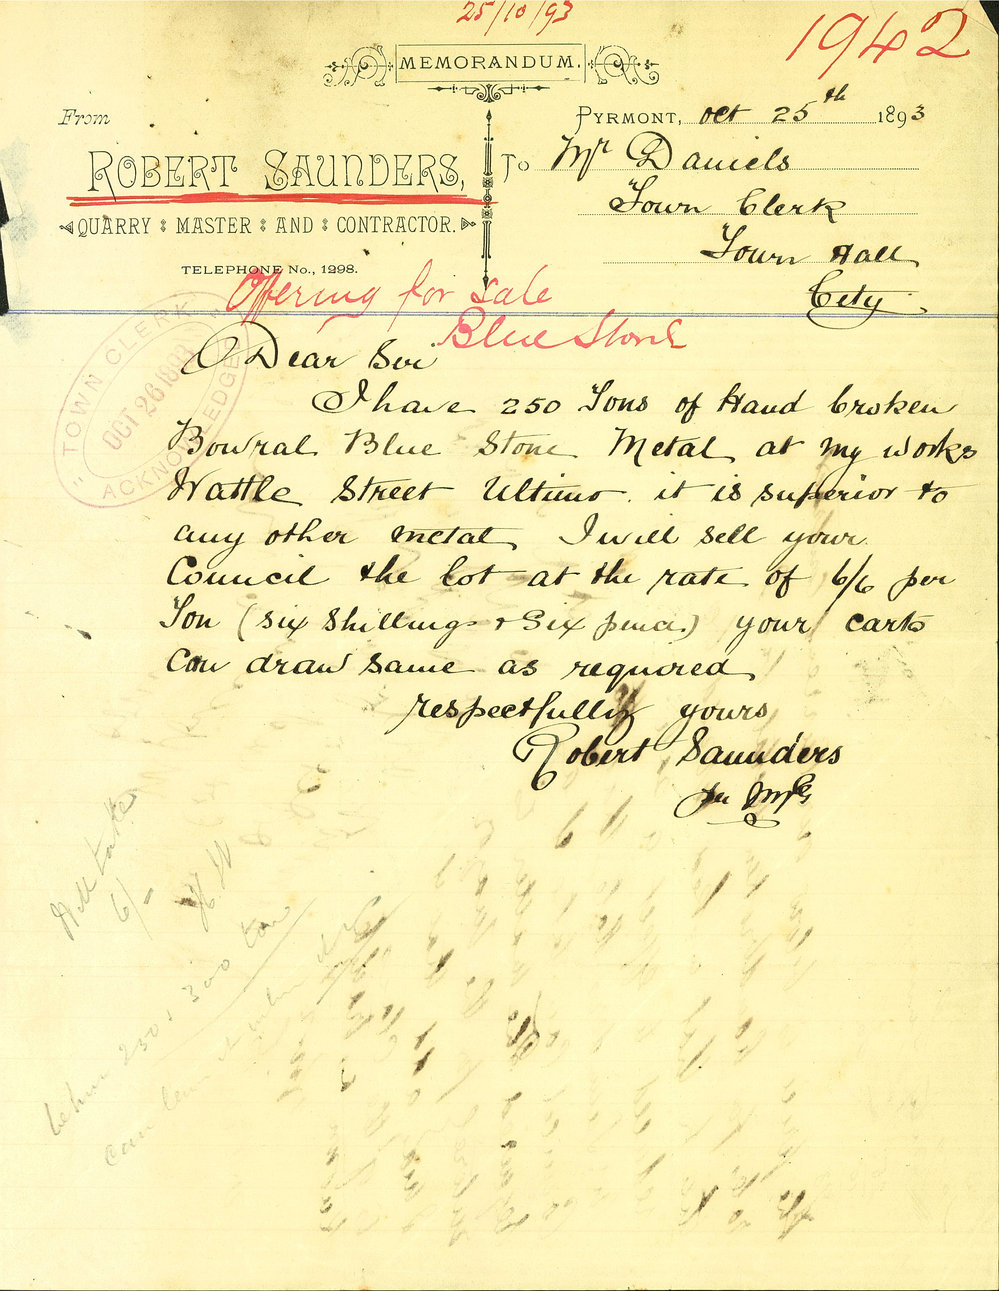 25/10/93
1942
MEMORANDUM.
From
PYRMONT, Oct 25th 1893
ROBERT SAUNDERS,
To Mr Daniels
QUARRY MASTER AND CONTRACTOR.
Town Clerk
Town Hall
City
TELEPHONE No., 1298.
Offering for sale
Blue Stone
"TOWN CLERK"
OCT 26 189
ACKNOWLEDGED
Dear Sir
I have 250 Tons of Hand broken
Bowral Blue Stone Metal at my works
Wattle Street Ultimo. it is superior to
any other metal I will sell your
Council the lot at the rate of 6/6 per
Ton (six Shillings & Six pence) your carts
Can draw same as required
respectfully yours
Robert Saunders
Will take
6/-
250 300 ton